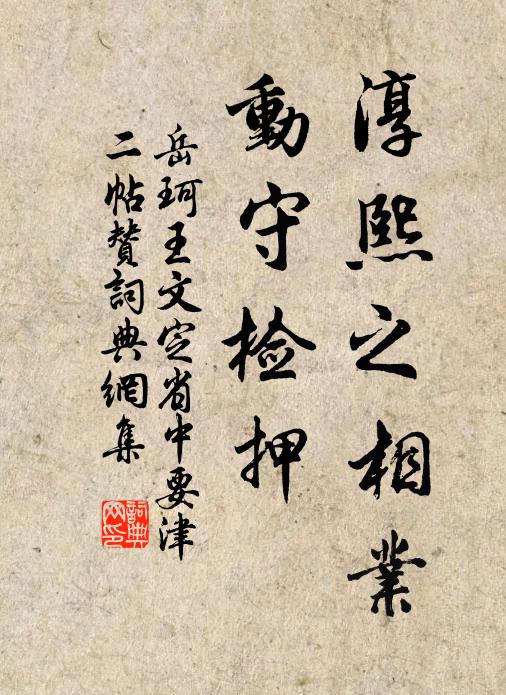 淳熙之相業
動守檢押
岳珂王文定省中要津
二帖赞詞典網集
詞典网印